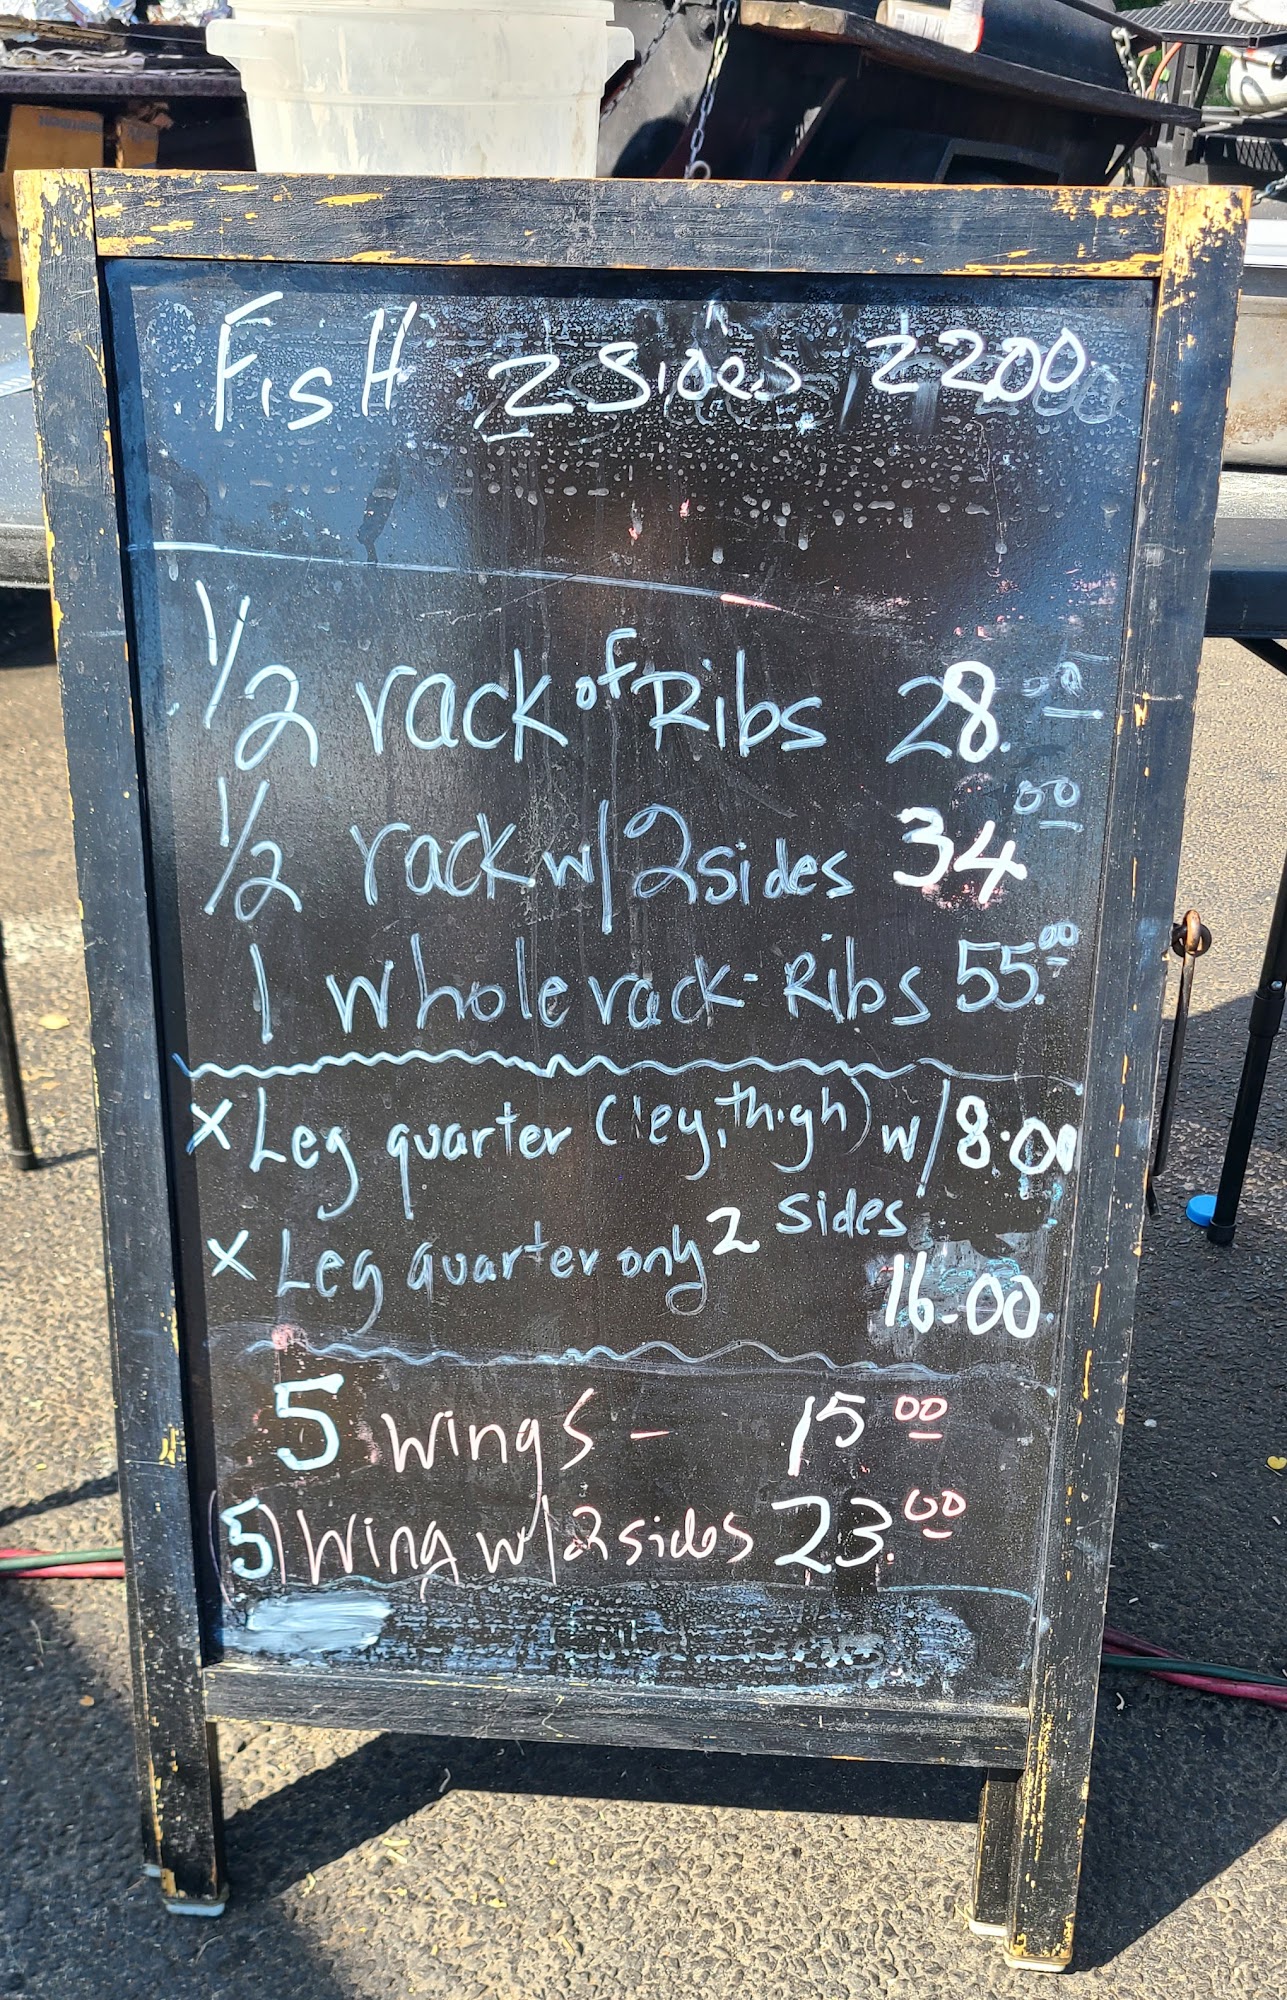 FisH 2 Sides 2200
1/2 rack of Ribs 28.
1/2 rack w/ 2 sides 34 00
1 whole rack - Ribs 55.00
x Leg quarter (leg, thigh) w/ 8.00
x Leg quarter only 2 sides
16.00
5 wings - 15 00
5 wing w/ 2 sides 23.00